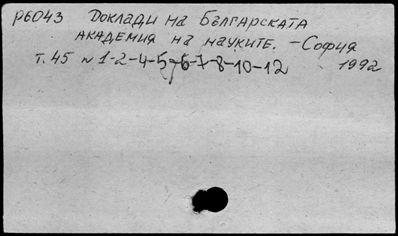 P6043 Доклади на Българската
академия на науките. - София
т. 45 N 1-2-4-5-6-7-8-10-12 1992